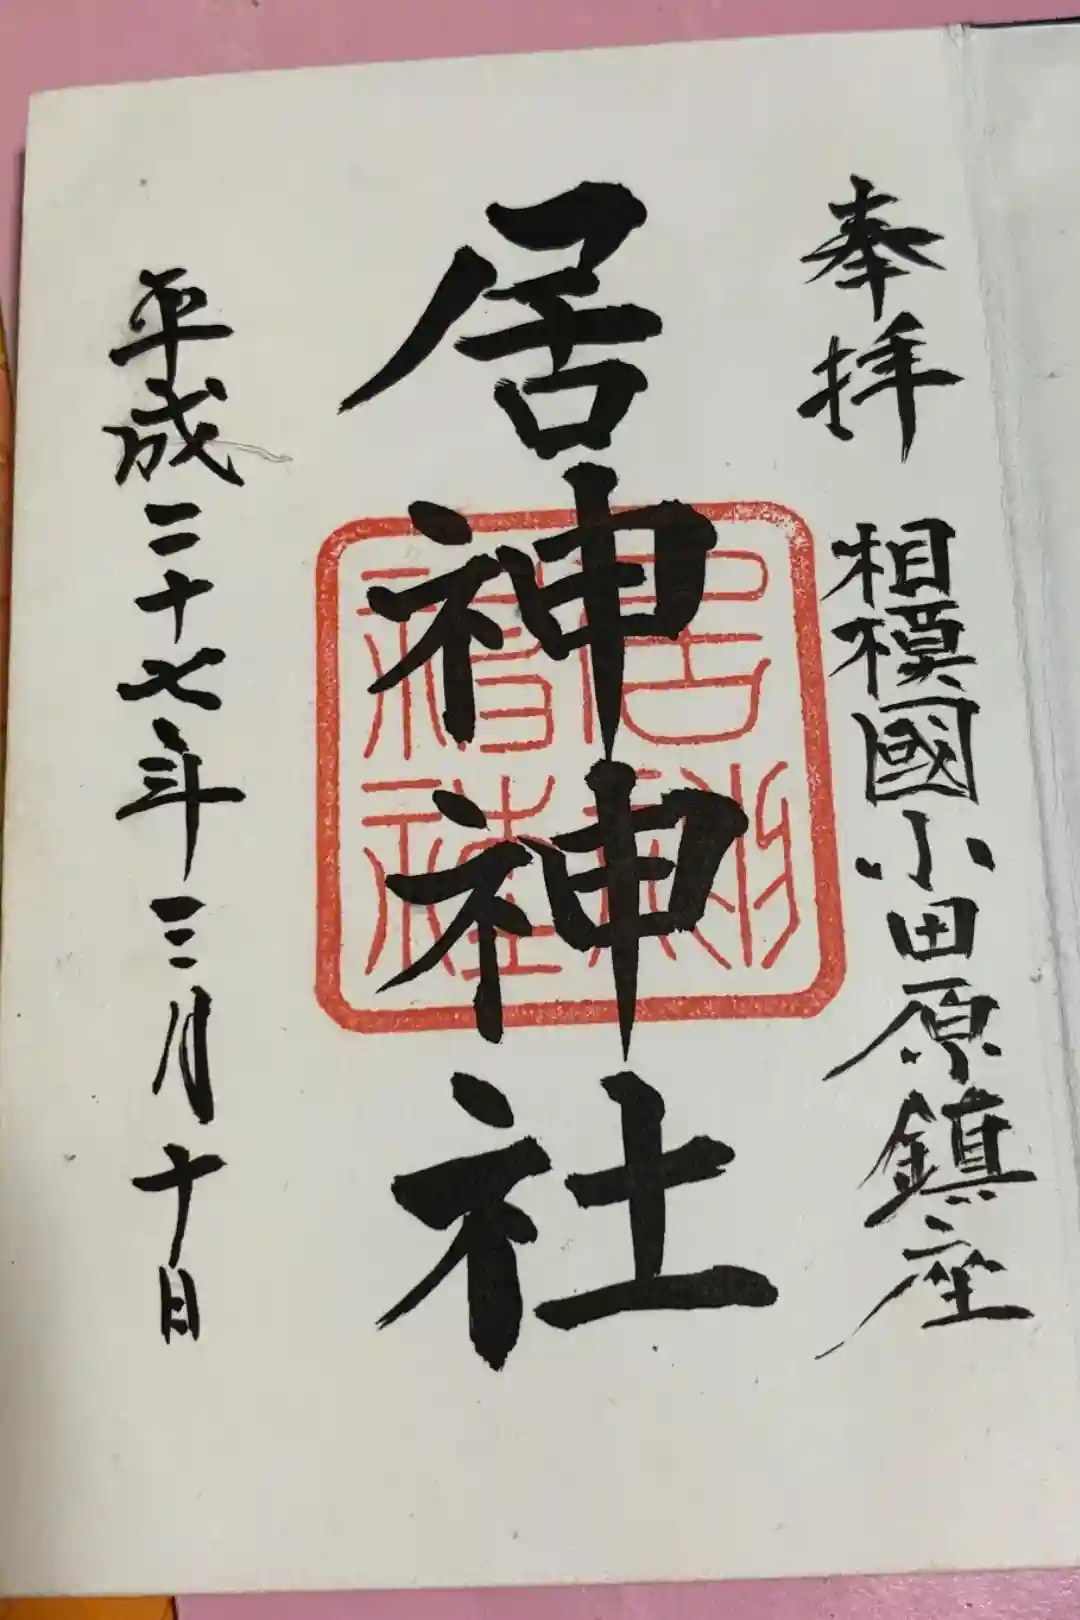 奉拝 相模國小田原鎮座
居神神社
居神神社
平成二十七年三月十日